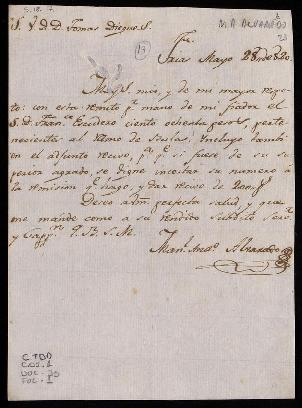 S. D. D. Tomas Dieguez.
M. A. ALVARADO
23
Jaias Mayo 28 de 820.
Muy S. mio, y de mi mayor respe-
to: con esta remito p.r mano de mi fiador el
S. D. Fran.co Escudero ciento ochenta pesos, perte-
necientes al Ramo de Bulas; incluyo tambi-
en el adjunto recivo, p.a q.e si fuese de su su-
perior agrado, se digne incertar su numero á
la remision q.e hago, y dar recivo de
Deseo á Vm perfecta salud, y que
me mande como a su rendido Subdito Serv.r
y Capp.n Q. B. S. M.
Man.l Ant.o Alvarado
CTDD
COS. 1
DOC. 79
FOL. 1